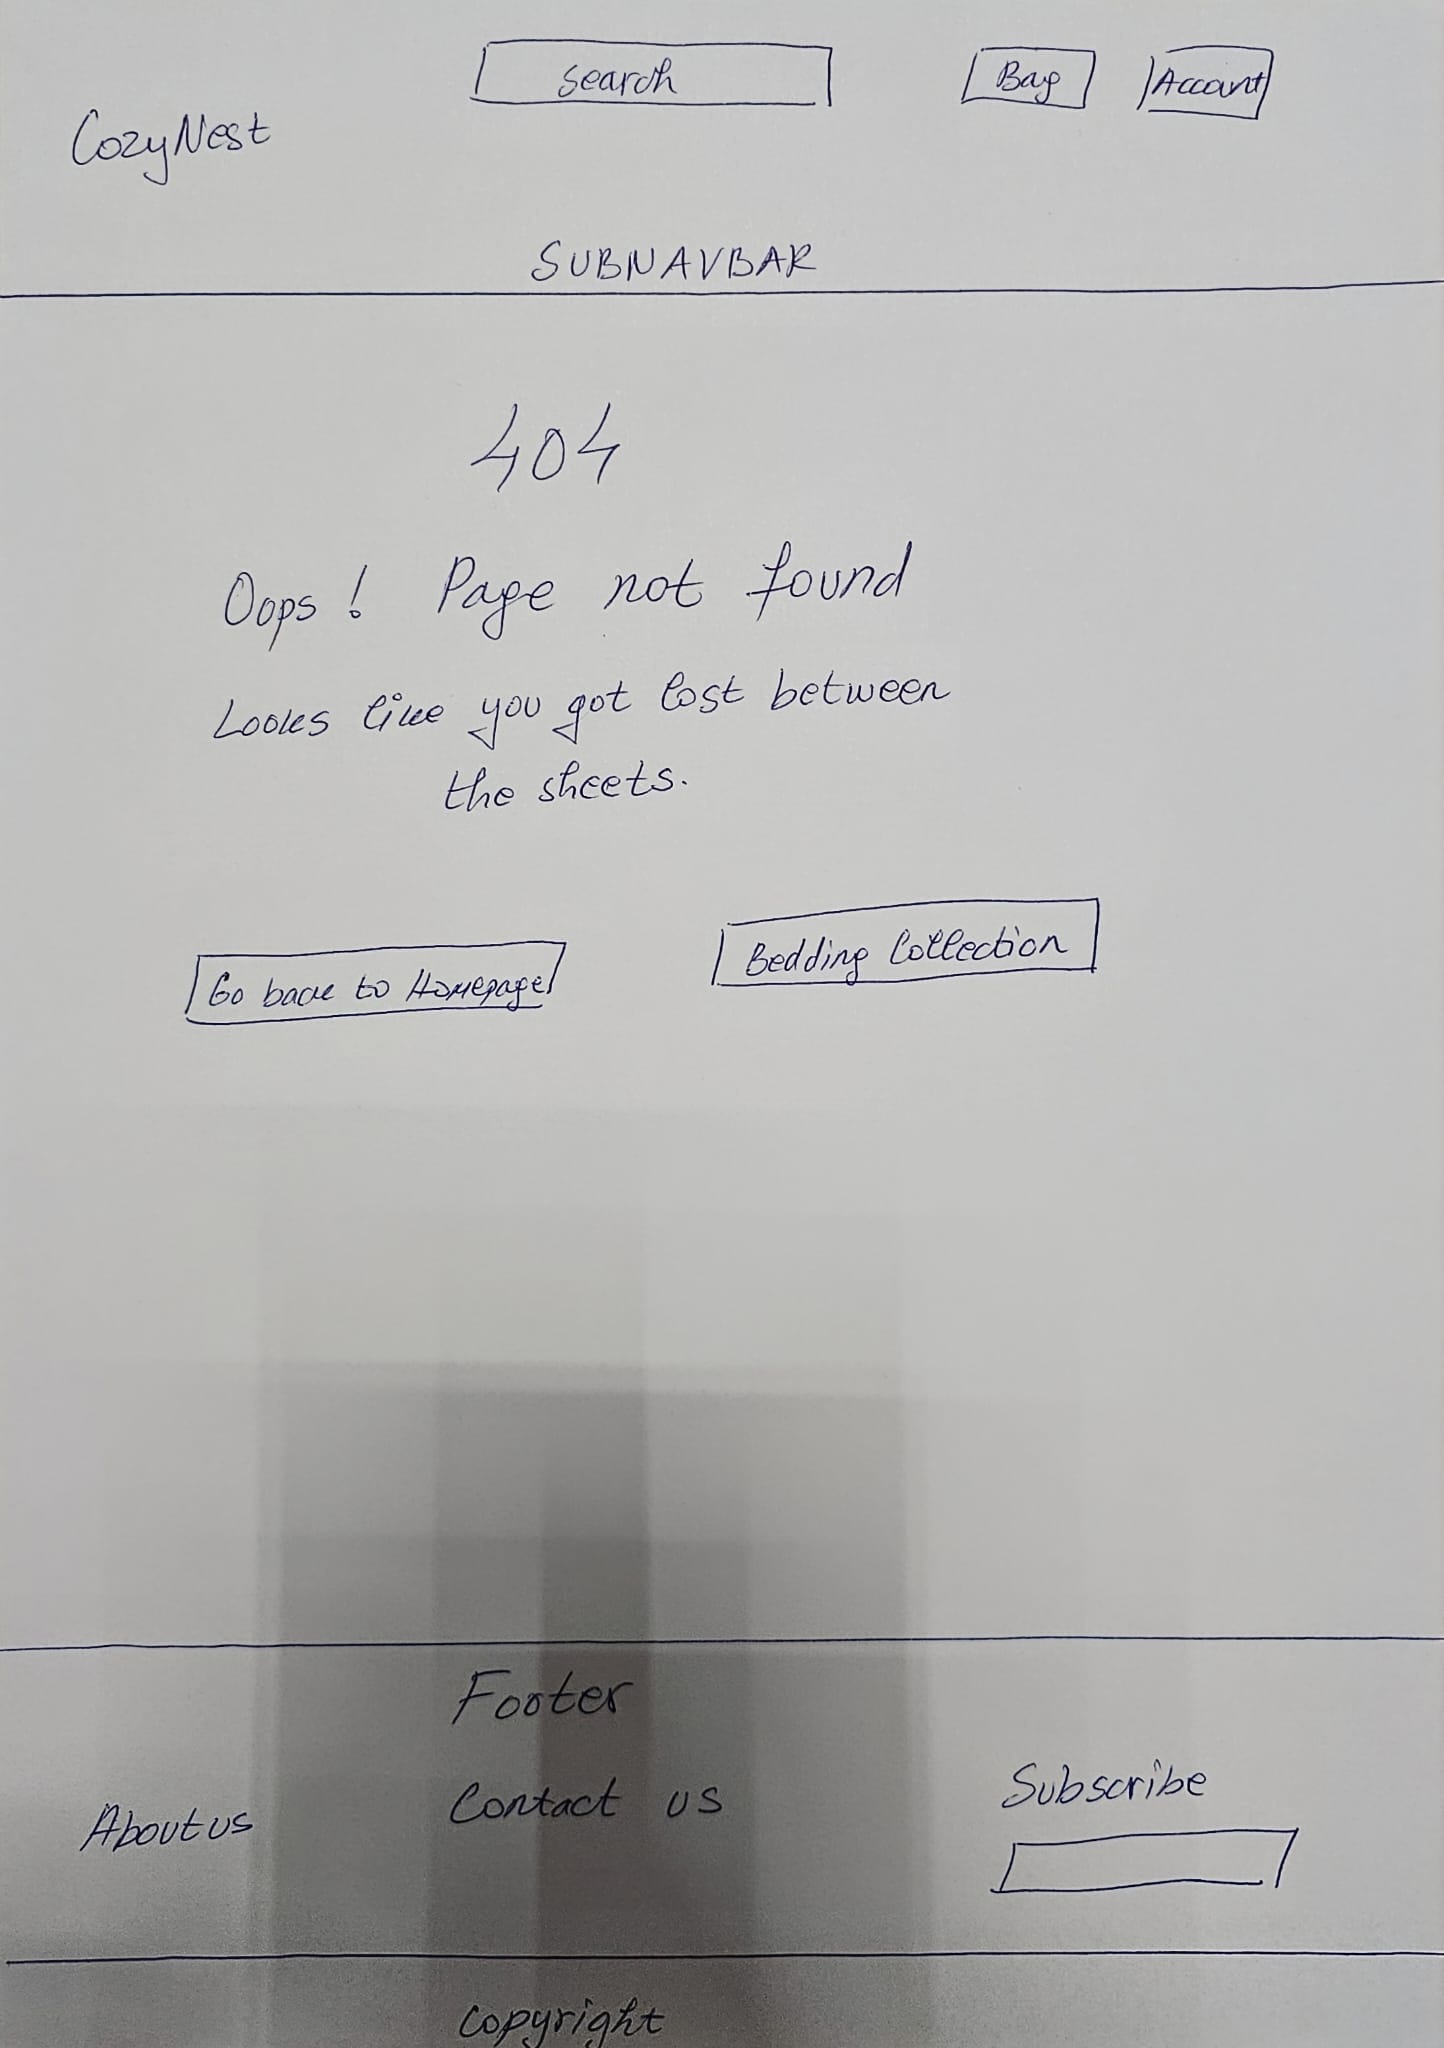 Search
Bag
Account
CozyNest
SUBNAVBAR
404
Oops! Page not found
Looks like you got lost between
the sheets.
Go back to Homepage
Bedding Collection
Footer
About us
Contact us
Subscribe
Copyright